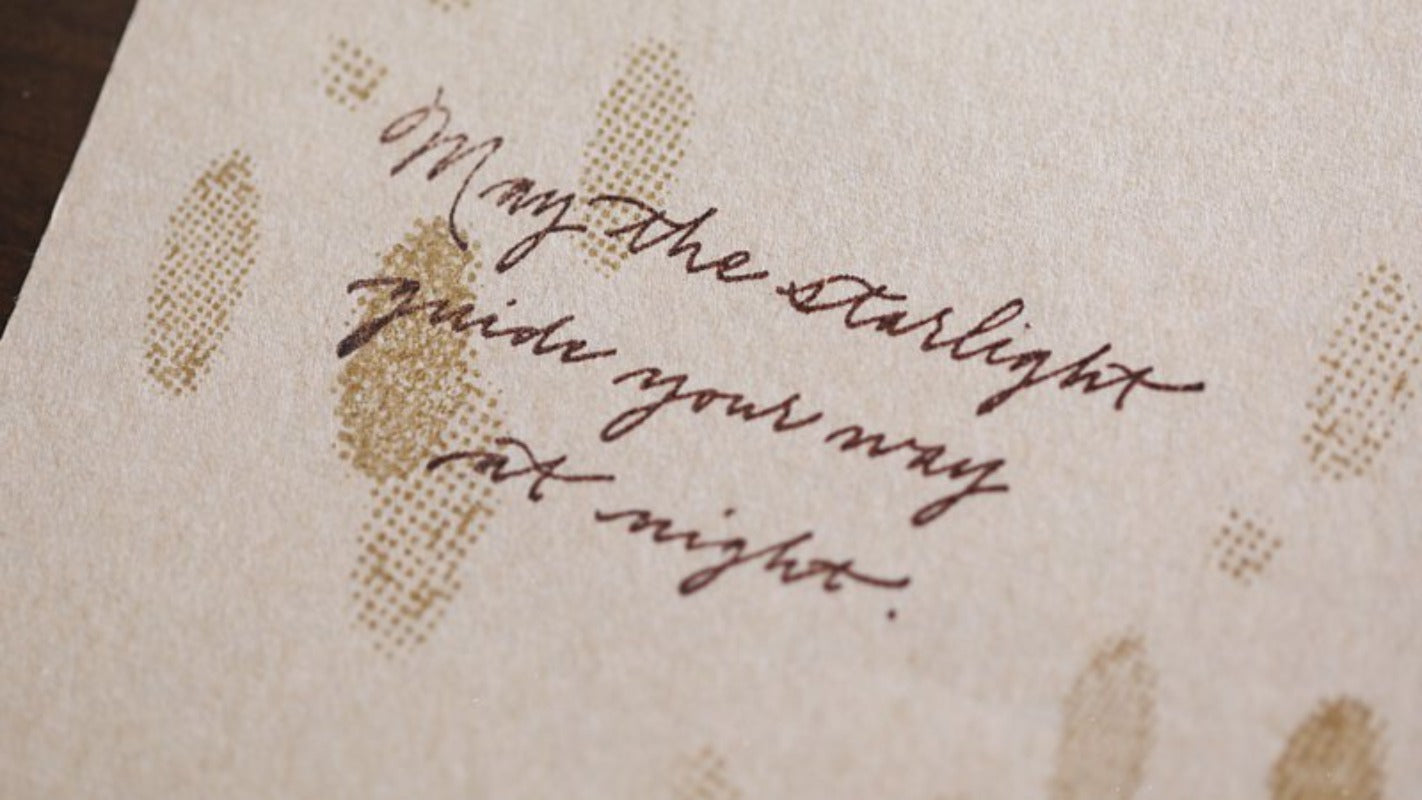 May the starlight
guide your way
at night.